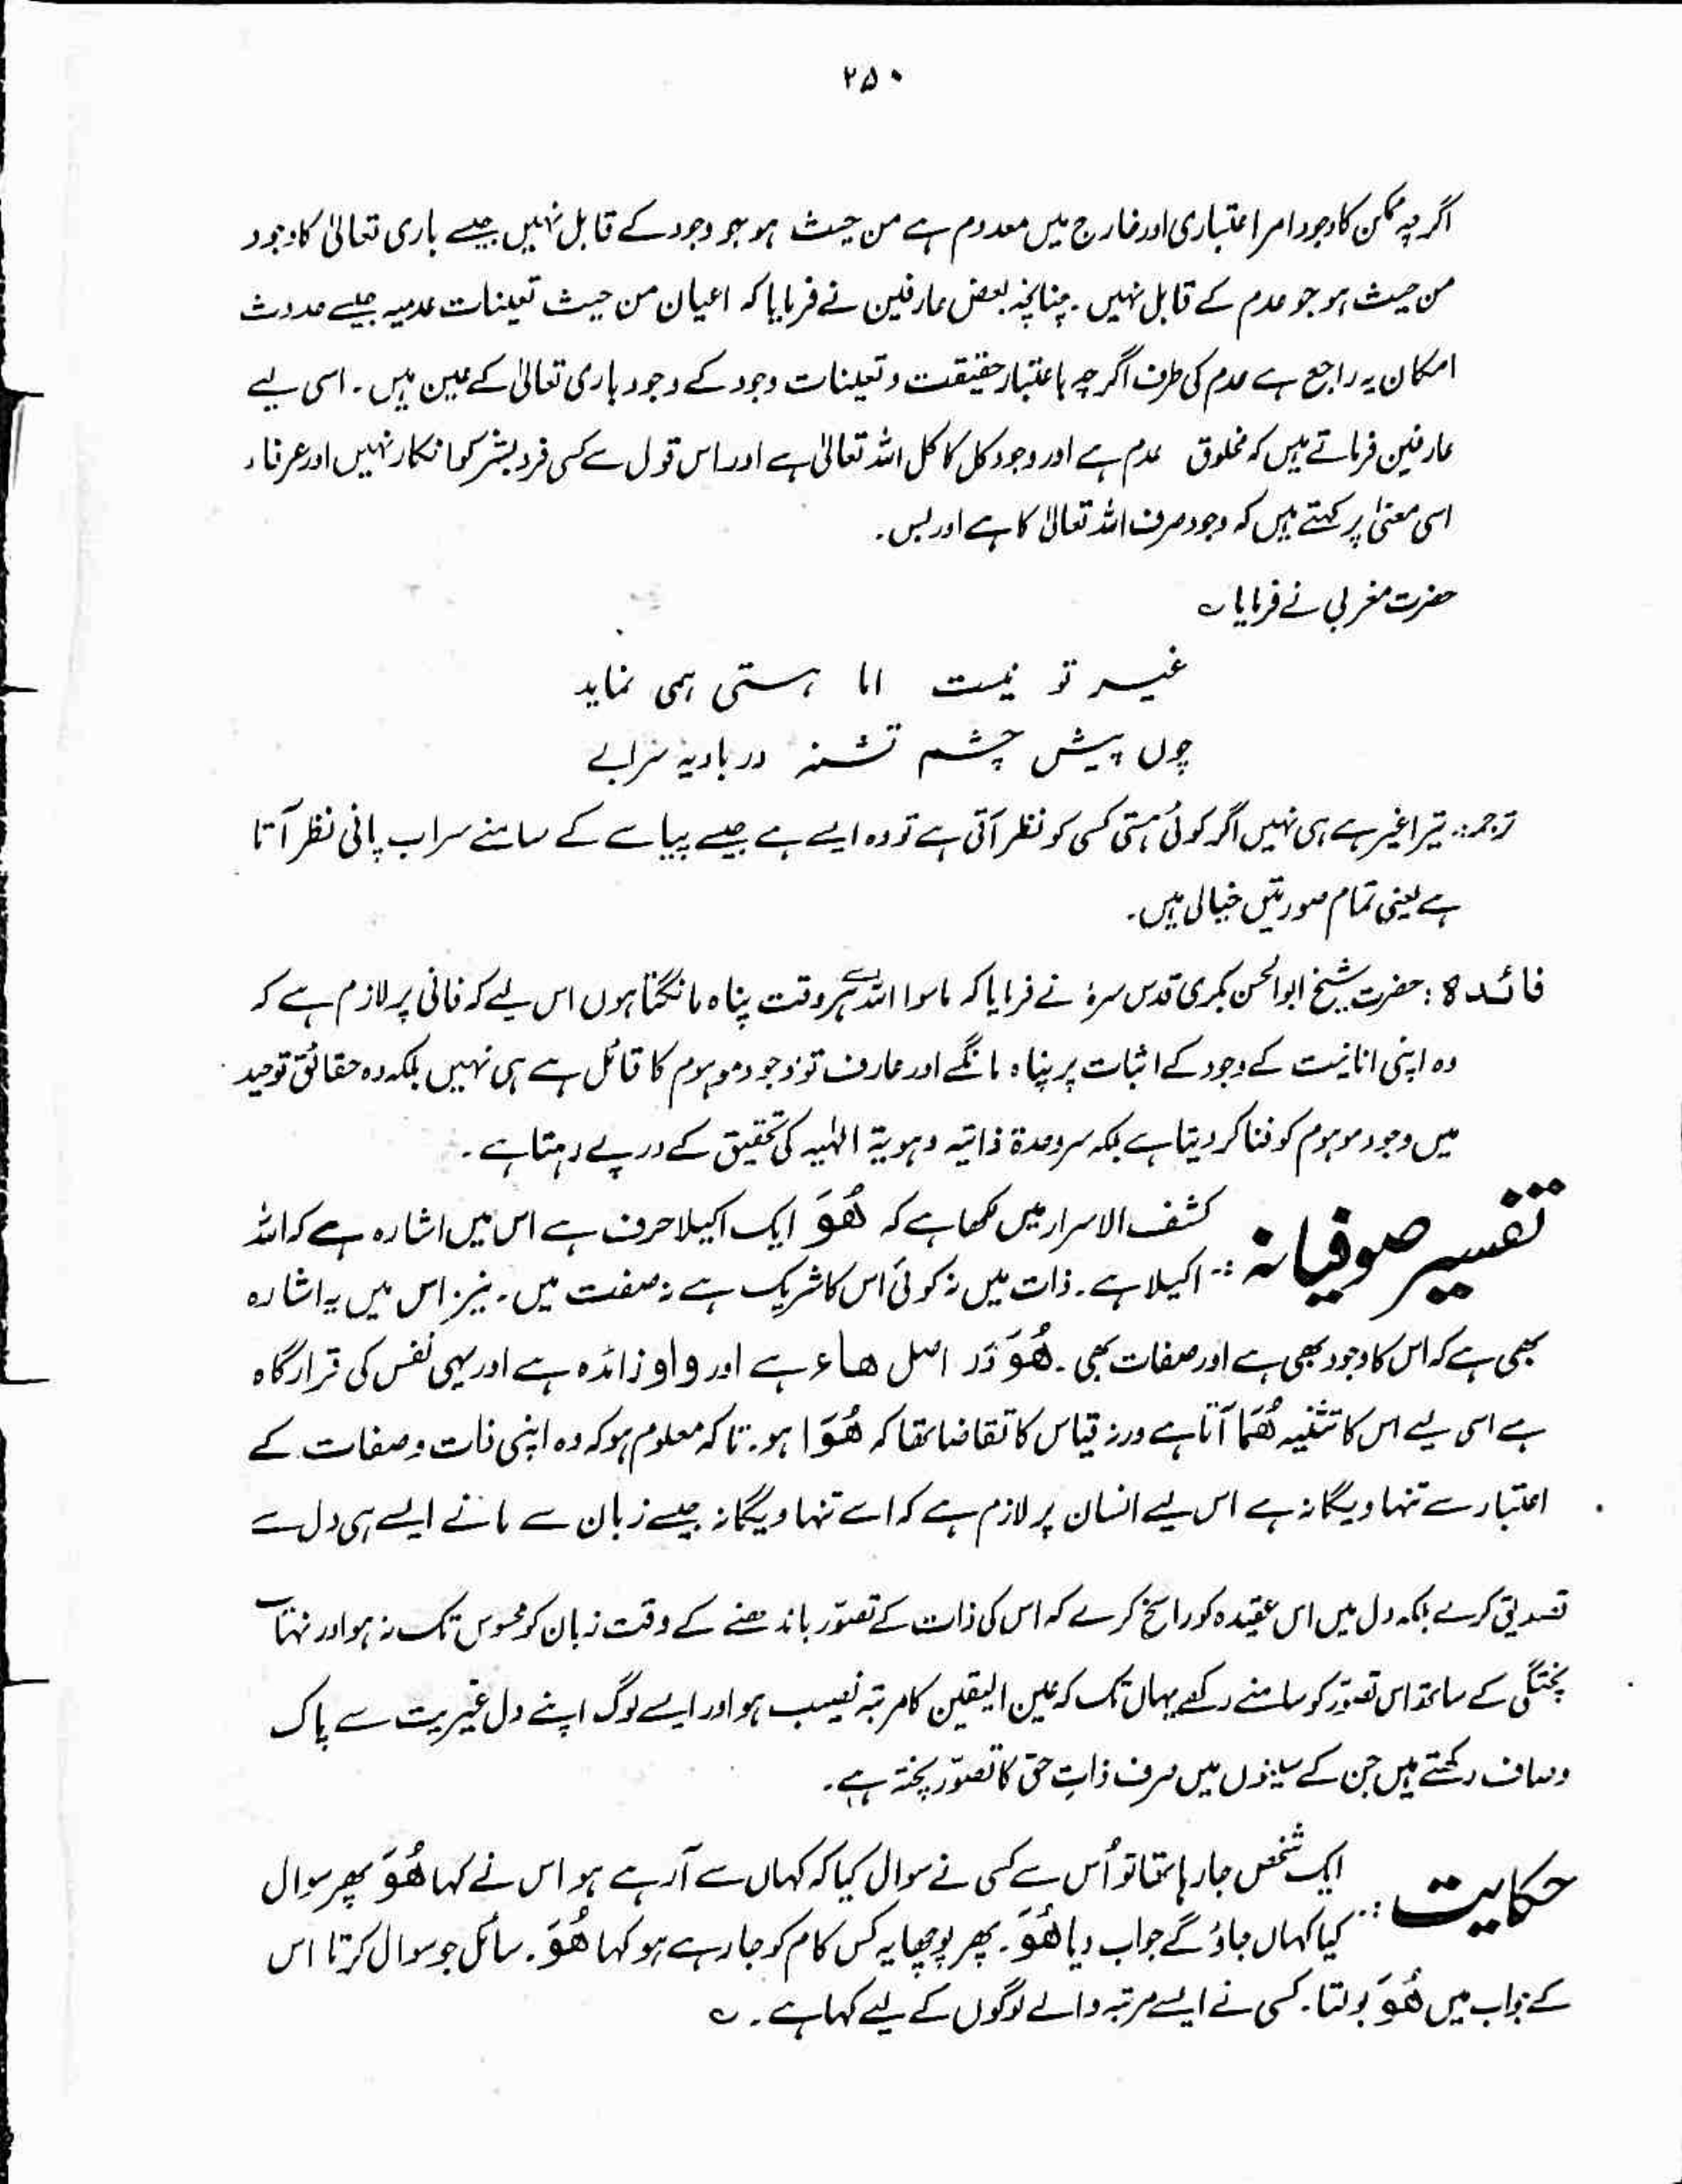 ۲۵۰
اگرچہ ممکن کا وجود امر اعتباری اور خارج میں معدوم ہے من حیث ہو ہو وجود کے قابل نہیں جیسے باری تعالیٰ کا وجود
من حیث ہو ہو عدم کے قابل نہیں ۔ چنانچہ بعض عارفین نے فرمایا کہ اعیان من حیث تعینات عدمیہ جیسے حدوث
امکان یہ راجع ہے عدم کی طرف اگرچہ باعتبار حقیقت و تعینات وجود کے وجود باری تعالیٰ کے عین ہیں ۔ اسی لیے
عارفین فرماتے ہیں کہ مخلوق عدم ہے اور وجود کل کا کل اللہ تعالیٰ ہے اور اس قول سے کسی فرد بشر کو انکار نہیں اور عرفاء
اسی معنیٰ پر کہتے ہیں کہ وجود صرف اللہ تعالیٰ کا ہے اور بس ۔
حضرت مغربی نے فرمایا ؎
غیر تو نیست اما ہستی ہمی نماید
چوں پیش چشم تشنہ در بادیہ سرابے
ترجمہ:۔ تیرا غیر ہے ہی نہیں اگر کوئی ہستی کسی کو نظر آتی ہے تو وہ ایسے ہے جیسے پیاسے کے سامنے سراب پانی نظر آتا
ہے یعنی تمام صورتیں خیالی ہیں ۔
فائدہ : حضرت شیخ ابوالحسن بکری قدس سرہٗ نے فرمایا کہ ماسوا اللہ سے ہر وقت پناہ مانگتا ہوں اس لیے کہ فانی پر لازم ہے کہ
وہ اپنی انانیت کے وجود کے اثبات پر پناہ مانگے اور عارف تو وجود موہوم کا قائل ہے ہی نہیں بلکہ وہ حقائق توحید
میں وجود موہوم کو فنا کر دیتا ہے بلکہ سر وحدۃ ذاتیہ و ہویۃ الٰہیہ کی تحقیق کے درپے رہتا ہے ۔
تفسیر صوفیانہ :۔ کشف الاسرار میں لکھا ہے کہ ھُوَ ایک اکیلا حرف ہے اس میں اشارہ ہے کہ اللہ
اکیلا ہے ۔ ذات میں نہ کوئی اس کا شریک ہے نہ صفت میں ۔ نیز اس میں یہ اشارہ
بھی ہے کہ اس کا وجود بھی ہے اور صفات بھی ۔ ھُوَ دَر اصل ھاء ہے اور واو زائدہ ہے اور یہی نفس کی قرارگاہ
ہے اسی لیے اس کا تثنیہ ھُمَا آتا ہے ورنہ قیاس کا تقاضا تھا کہ ھُوَا ہو ۔ تاکہ معلوم ہو کہ وہ اپنی ذات و صفات کے
اعتبار سے تنہا و یگانہ ہے اس لیے انسان پر لازم ہے کہ اسے تنہا و یگانہ جیسے زبان سے مانے ایسے ہی دل سے
تصدیق کرے بلکہ دل میں اس عقیدہ کو راسخ کرے کہ اس کی ذات کے تصوّر باندھنے کے وقت زبان کو محسوس تک نہ ہو اور نہایت
پختگی کے ساتھ اس تصوّر کو سامنے رکھے یہاں تک کہ عین الیقین کا مرتبہ نصیب ہو اور ایسے لوگ اپنے دل غیریت سے پاک
و صاف رکھتے ہیں جن کے سینوں میں صرف ذاتِ حق کا تصوّر پختہ ہے ۔
حکایت :۔ ایک شخص جا رہا تھا تو اُس سے کسی نے سوال کیا کہ کہاں سے آ رہے ہو اس نے کہا ھُوَ پھر سوال
کیا کہاں جاؤ گے جواب دیا ھُوَ ۔ پھر پوچھا یہ کس کام کو جا رہے ہو کہا ھُوَ ۔ سائل جو سوال کرتا اس
کے جواب میں ھُوَ بولتا ۔ کسی نے ایسے مرتبہ والے لوگوں کے لیے کہا ہے ۔ ؎